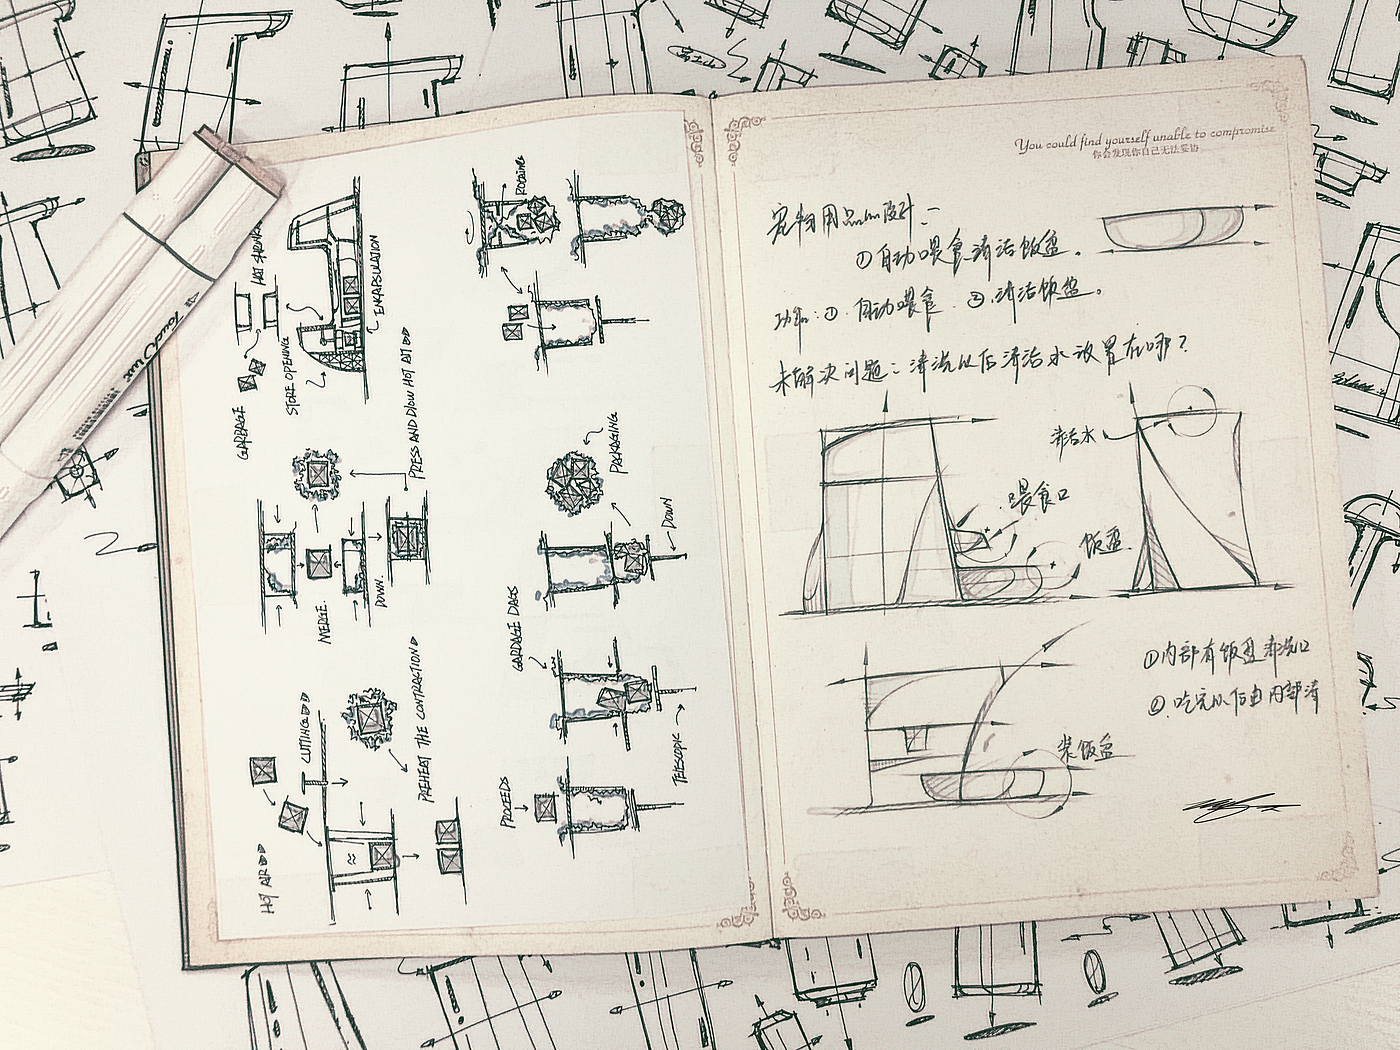 HOT AIR
CUTTING
PREHEAT THE CONTRACTION
MERGE
DOWN.
PRESS AND BLOW HOT AIR
GARBAGE
STORE OPENING
HOT SHRINK
ENKAPSULATION
PROCEEDS
TELESCOPIC
GARBAGE BAGS
DOWN
PACKAGING
ROTATING
Touch Liit
You could find yourself unable to compromise
你会发现你自己无法妥协
宠物用品设计:
①自动喂食清洁饭盘.
功能:①.自动喂食.②.清洁饭盘.
未解决问题:清洗以后清洁水放置在哪?
清洁水
喂食口
饭盘.
①内部有饭盘清洗口
②.吃完以后由内部清
装饭盘